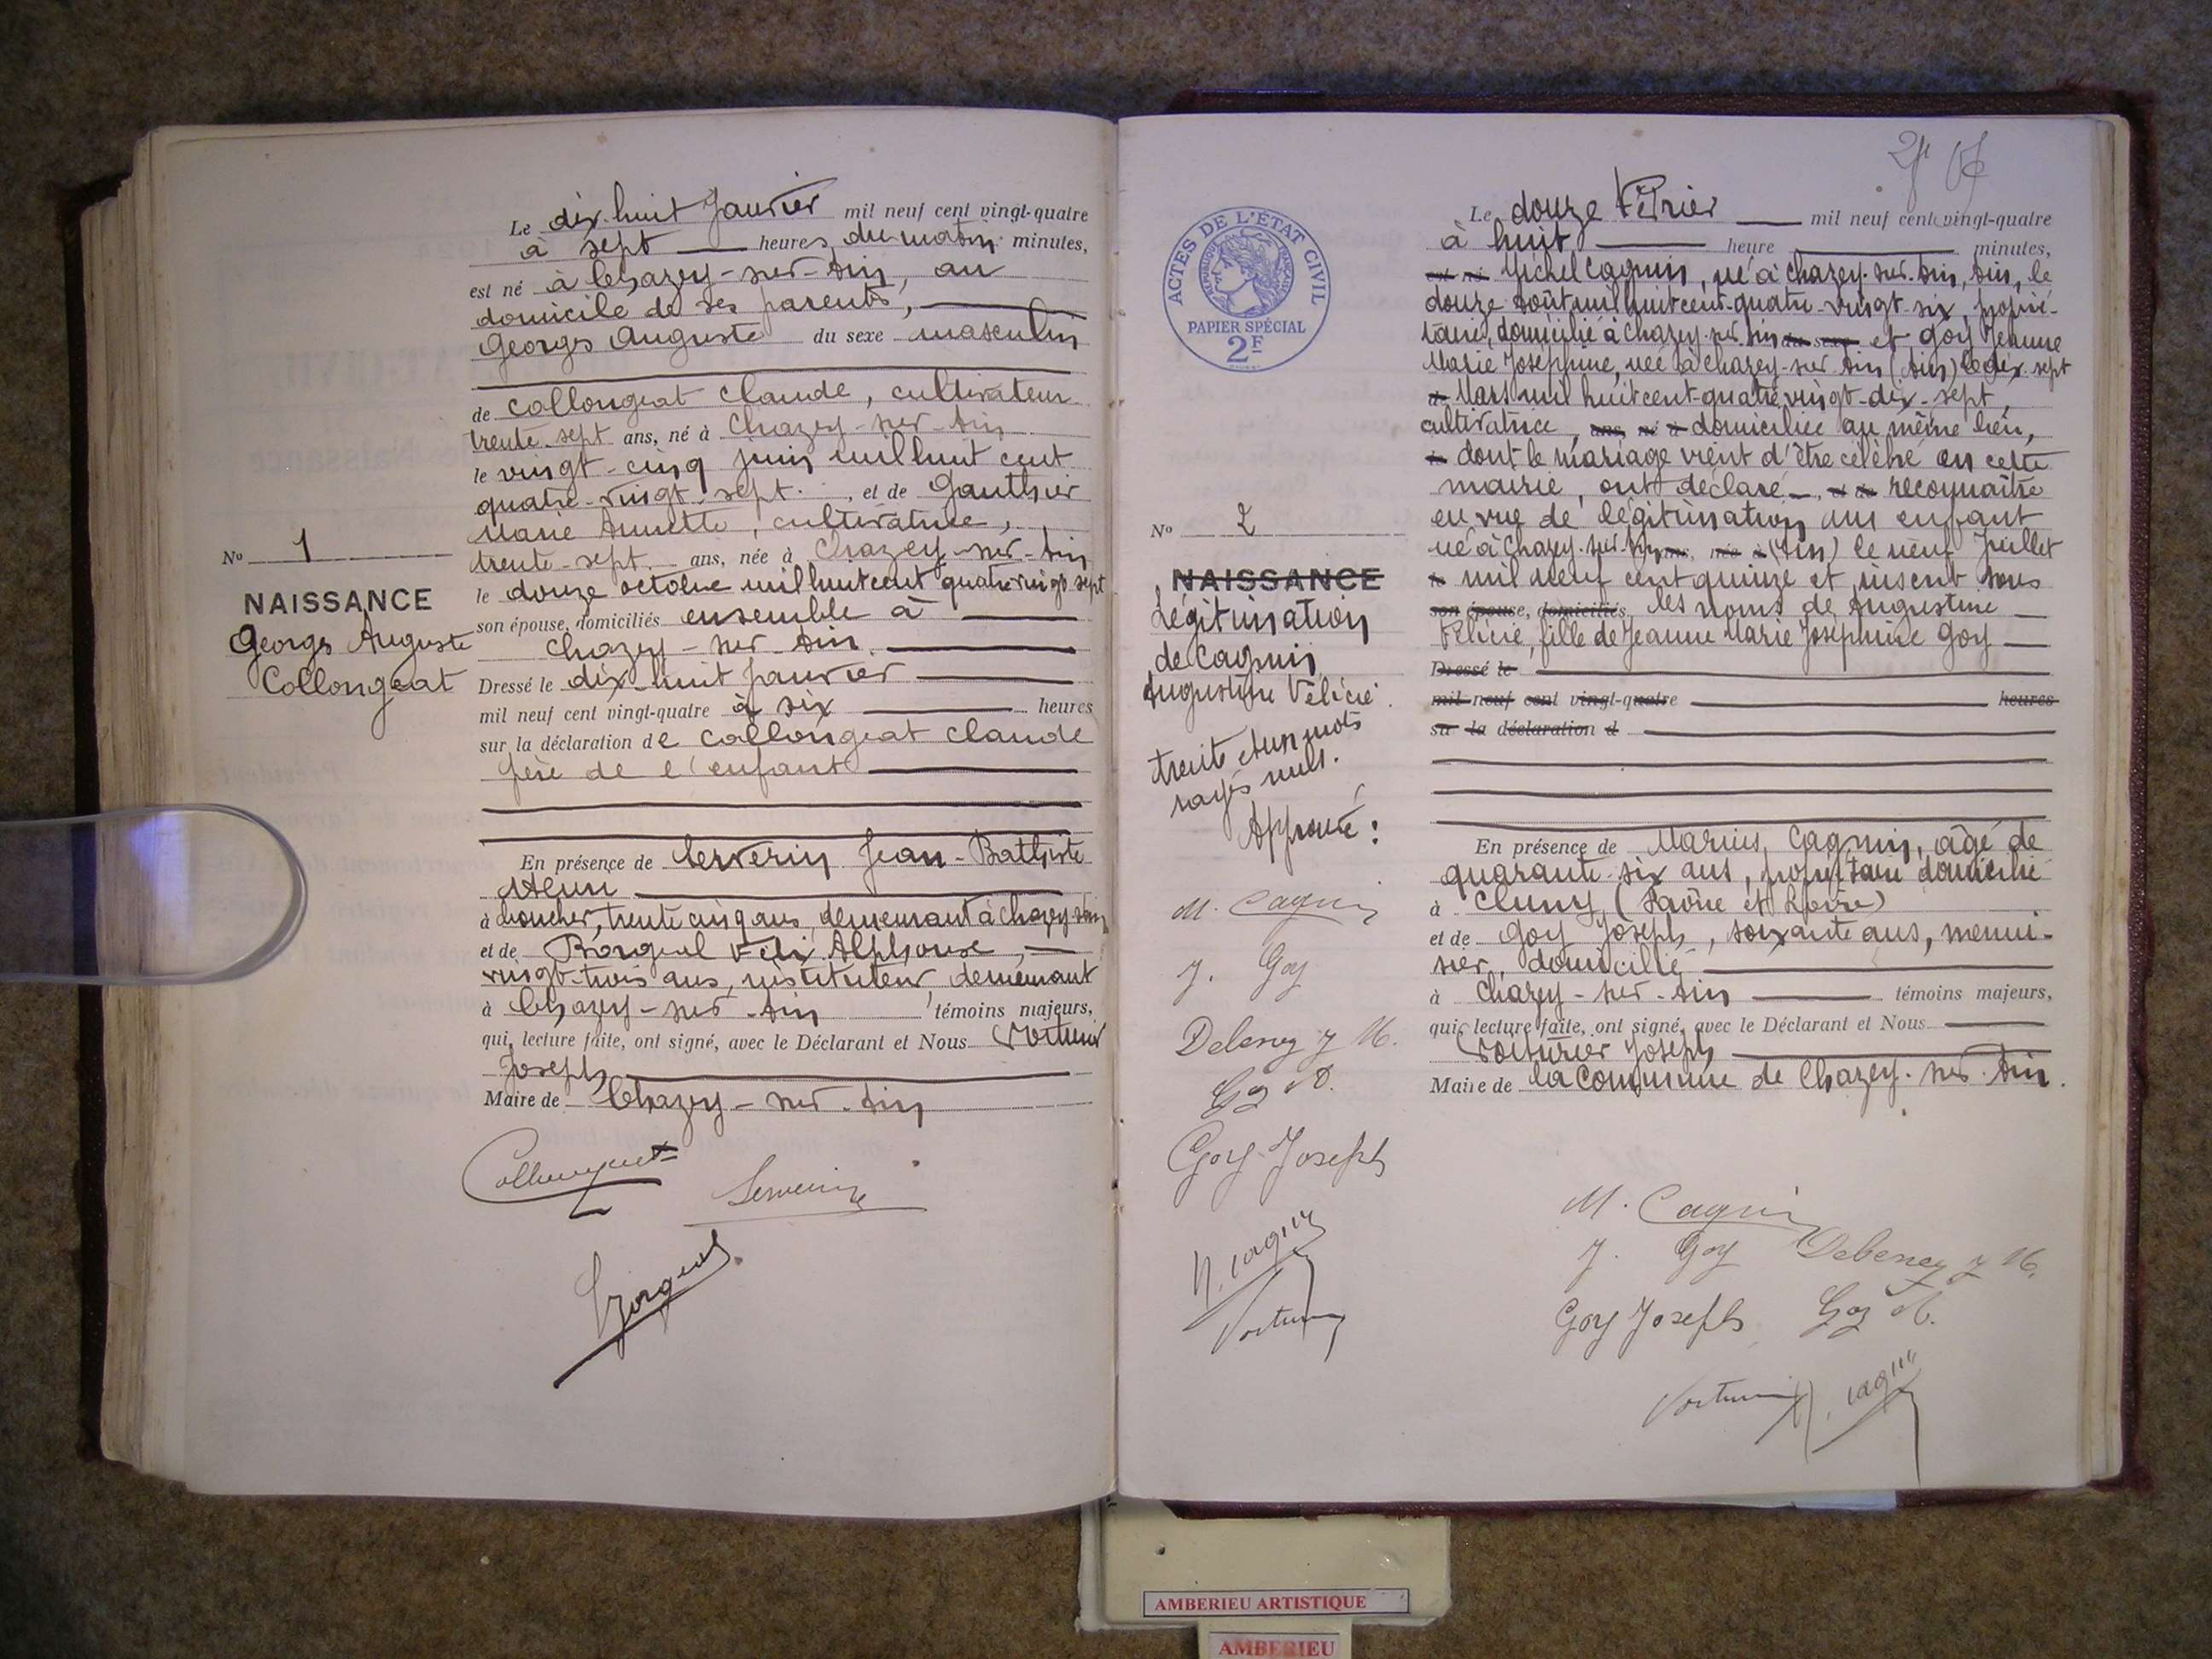 Le dix-huit Janvier mil neuf cent vingt-quatre
à sept heures du matin minutes,
est né à Chazey-sur-Ain, au
domicile de ses parents,
Georges Auguste du sexe masculin
de Collongeat Claude, cultivateur
trente-sept ans, né à Chazey-sur-Ain
le vingt-cinq juin mil huit cent
quatre-vingt-sept, et de Gauthier
Marie Annette, cultivatrice,
trente-sept ans, née à Chazey-sur-Ain
le douze octobre mil huit cent quatre vingt sept
son épouse, domiciliés ensemble à
Chazey-sur-Ain.
Dressé le dix-huit Janvier
mil neuf cent vingt-quatre à six heures
sur la déclaration de Collongeat Claude
père de l'enfant
En présence de Serverin Jean-Baptiste
Henri
à boucher, trente cinq ans, demeurant à Chazey s Ain
et de Borgeul Félix Alphonse,
vingt-trois ans, instituteur demeurant
à Chazey-sur-Ain témoins majeurs,
qui, lecture faite, ont signé, avec le Déclarant et Nous Voiturier
Joseph
Maire de Chazey-sur-Ain
N° 1
NAISSANCE
Georges Auguste
Collongeat
Collongeat
Serverin
Borgeul
ACTES DE L'ÉTAT CIVIL
RÉPUBLIQUE FRANÇAISE
PAPIER SPÉCIAL
2F
N° 2
NAISSANCE
Légitimation
de Cagnin
Augustine Félicie
trente et un mots
rayés nuls.
Approuvé :
M. Cagnin
J. Goy
Debeney J M.
Goy
Goy Joseph
M. Cagnin
Voiturier
Le douze Février mil neuf cent vingt-quatre
à huit heure minutes,
est né Michel Cagnin, né à Chazey-sur-Ain, Ain, le
douze Août mil huit cent quatre-vingt-six, proprié-
taire, domicilié à Chazey-sur-Ain du sexe et Goy Jeanne
Marie Joséphine, née à Chazey-sur-Ain (Ain) le dix sept
de Mars mil huit cent quatre vingt-dix-sept,
cultivatrice, ans, né à domiciliée au même lieu,
le dont le mariage vient d'être célébré en cette
mairie, ont déclaré, et de reconnaître
en vue de légitimation un enfant
né à Chazey-sur-Ain ans, née à (Ain) le neuf Juillet
le mil neuf cent quinze et inscrit sous
son épouse, domiciliés les noms de Augustine
Félicie, fille de Jeanne Marie Joséphine Goy
Dressé le
mil neuf cent vingt-quatre heures
sur la déclaration d
En présence de Marius Cagnin, âgé de
quarante-six ans, propriétaire domicilié
à Cluny (Saône et Loire)
et de Goy Joseph, soixante ans, menui-
sier, domicilié
à Chazey-sur-Ain témoins majeurs,
qui, lecture faite, ont signé, avec le Déclarant et Nous
Voiturier Joseph
Maire de la Commune de Chazey-sur-Ain.
M. Cagnin
J. Goy Debeney J M.
Goy Joseph Goy
Voiturier M. Cagnin
AMBERIEU ARTISTIQUE
AMBERIEU